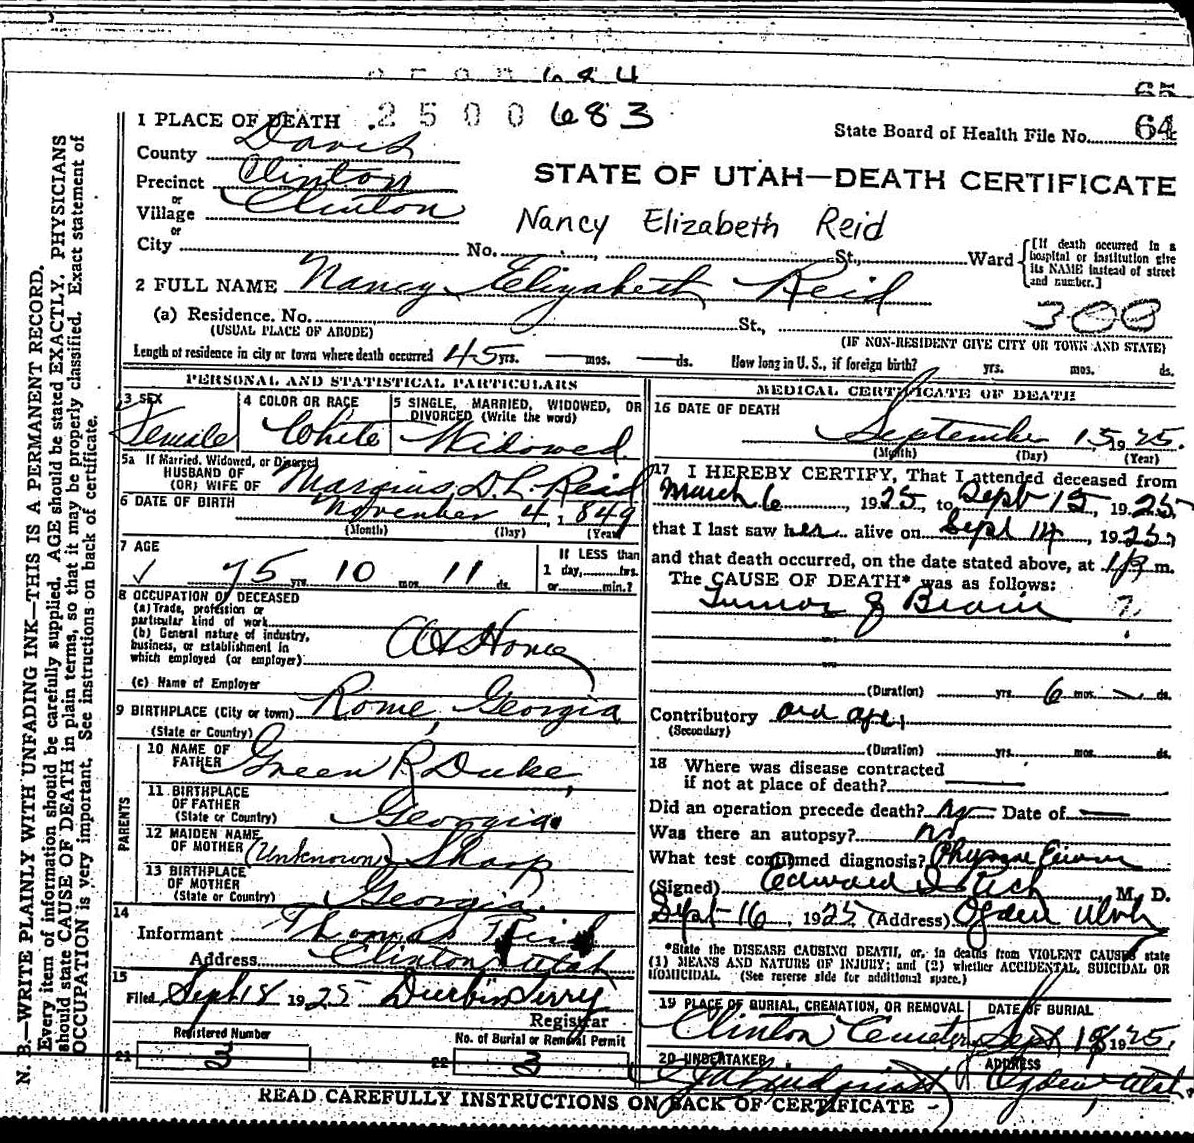 684
65
1 PLACE OF DEATH 2500683
State Board of Health File No. 64
County Davis
Precinct Clinton
or
Village Clinton
or
City
STATE OF UTAH—DEATH CERTIFICATE
Nancy Elizabeth Reid
No. St., Ward
[If death occurred in a hospital or institution give its NAME instead of street and number.]
2 FULL NAME Nancy Elizabeth Reid
(a) Residence. No. St.,
300
(USUAL PLACE OF ABODE)
(IF NON-RESIDENT GIVE CITY OR TOWN AND STATE)
Length of residence in city or town where death occurred 45 yrs. — mos. — ds. How long in U. S., if foreign birth? yrs. mos. ds.
PERSONAL AND STATISTICAL PARTICULARS
3 SEX
Female
4 COLOR OR RACE
White
5 SINGLE, MARRIED, WIDOWED, OR DIVORCED (Write the word)
Widowed
5a If Married, Widowed, or Divorced
HUSBAND OF
(OR) WIFE OF Marcius D. L. Reid
6 DATE OF BIRTH November 4, 1849
(Month) (Day) (Year)
7 AGE
✓ 75 yrs. 10 mos. 11 ds.
If LESS than
1 day, hrs.
or min.?
8 OCCUPATION OF DECEASED
(a) Trade, profession or
particular kind of work
(b) General nature of industry,
business, or establishment in
which employed (or employer)
At Home
(c) Name of Employer
9 BIRTHPLACE (City or town) Rome, Georgia
(State or Country)
PARENTS
10 NAME OF
FATHER Green R Duke,
11 BIRTHPLACE
OF FATHER
(State or Country) Georgia
12 MAIDEN NAME
OF MOTHER (Unknown) Sharp
13 BIRTHPLACE
OF MOTHER
(State or Country) Georgia.
14
Informant Thomas Reid
Address Clinton, Utah
15
Filed Sept 18 1925 Durbin Terry
Registrar
Registered Number
No. of Burial or Removal Permit
21 3
22 3
MEDICAL CERTIFICATE OF DEATH
16 DATE OF DEATH
September 15, 1925.
(Month) (Day) (Year)
17 I HEREBY CERTIFY, That I attended deceased from
March 6, 1925, to Sept 15, 1925,
that I last saw her alive on Sept 14, 1925,
and that death occurred, on the date stated above, at m.
The CAUSE OF DEATH* was as follows:
Tumor of Brain ?
(Duration) yrs. 6 mos. — ds.
Contributory old age,
(Secondary)
(Duration) yrs. mos. ds.
18 Where was disease contracted
if not at place of death?
Did an operation precede death? No Date of —
Was there an autopsy? no
What test confirmed diagnosis? Physical Exam
(Signed) Edward I Rich M. D.
Sept 16, 1925 (Address) Ogden Utah
*State the DISEASE CAUSING DEATH, or, in deaths from VIOLENT CAUSES state
(1) MEANS AND NATURE OF INJURY; and (2) whether ACCIDENTAL, SUICIDAL OR
HOMICIDAL. (See reverse side for additional space.)
19 PLACE OF BURIAL, CREMATION, OR REMOVAL
Clinton Cemetery
DATE OF BURIAL
Sept 18 1925.
20 UNDERTAKER
ADDRESS
Ogden, Utah
READ CAREFULLY INSTRUCTIONS ON BACK OF CERTIFICATE
N. B.—WRITE PLAINLY WITH UNFADING INK—THIS IS A PERMANENT RECORD.
Every item of information should be carefully supplied. AGE should be stated EXACTLY. PHYSICIANS
should state CAUSE OF DEATH in plain terms, so that it may be properly classified. Exact statement of
OCCUPATION is very important. See instructions on back of certificate.